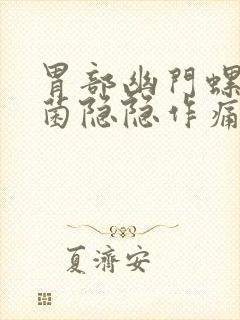 胃部幽門螺
菌隐隐作痛
夏濟安